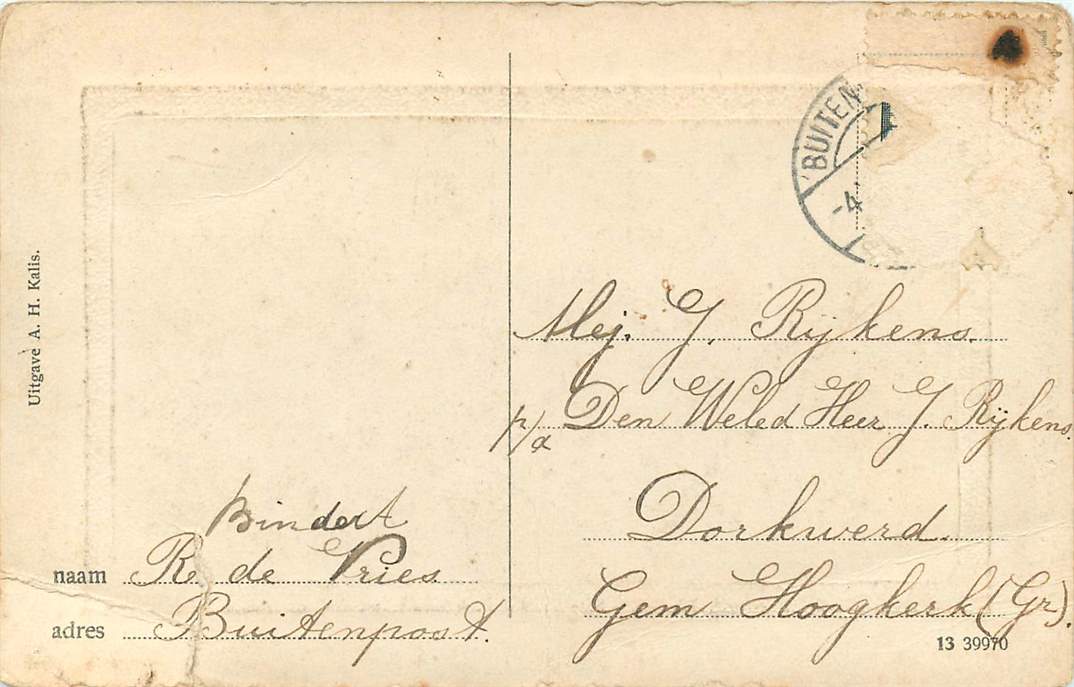 Uitgave A. H. Kalis.
BUITEN
-4
Mej. J. Rijkens.
p/a Den Weled Heer J. Rijkens.
Dorkwerd.
Gem Hoogkerk (Gr).
Bindert
naam R. de Vries
adres Buitenpost.
13 39970